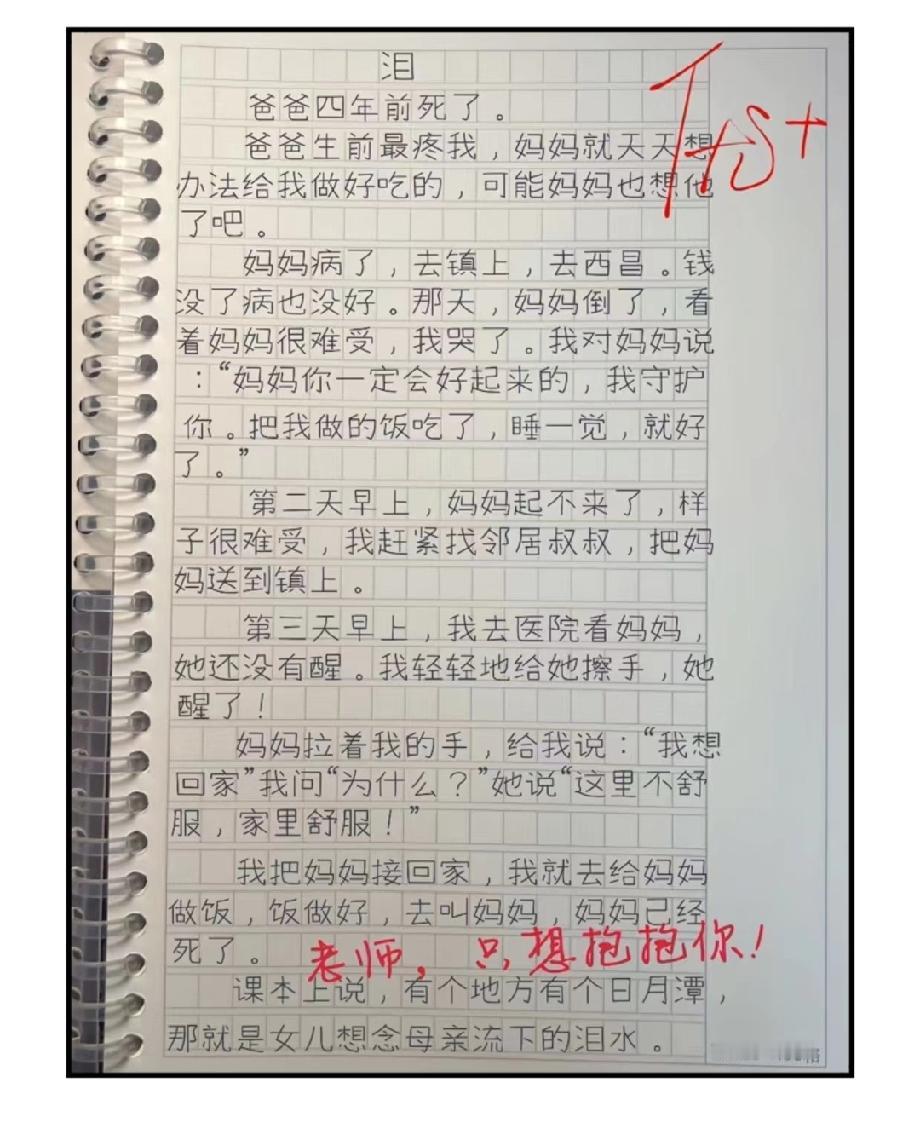 泪
爸爸四年前死了。
爸爸生前最疼我，妈妈就天天想
办法给我做好吃的，可能妈妈也想他
了吧。
妈妈病了，去镇上，去西昌。钱
没了病也没好。那天，妈妈倒了，看
着妈妈很难受，我哭了。我对妈妈说
：“妈妈你一定会好起来的，我守护
你。把我做的饭吃了，睡一觉，就好
了。”
第二天早上，妈妈起不来了，样
子很难受，我赶紧找邻居叔叔，把妈
妈送到镇上。
第三天早上，我去医院看妈妈，
她还没有醒。我轻轻地给她擦手，她
醒了！
妈妈拉着我的手，给我说：“我想
回家”我问“为什么？”她说“这里不舒
服，家里舒服！”
我把妈妈接回家，我就去给妈妈
做饭，饭做好，去叫妈妈，妈妈已经
死了。
老师，只想抱抱你！
课本上说，有个地方有个日月潭，
那就是女儿想念母亲流下的泪水。